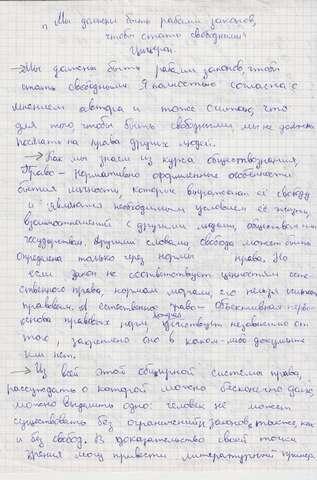 „Мы должны быть рабами законов,
чтобы стать свободными"
Цицерон.
→Мы должны быть рабами законов, чтоб
стать свободными. Я полностью согласна с
мнением автора и тоже считаю, что
для того, чтоб быть свободными мы не должны
посягать на права других людей.
→Как мы знаем из курса обществознания,
Право – нормативно оформленные особенности
бытия личности, которые выражают её свободу
и являются необходимым условием её жизни,
взаимоотношений с другими людьми, обществом и
государством. Другими словами, свобода может быть
определена только через нормы права. Но
если закон не соответствует ценностям есте-
ственного права, нормам морали, его нельзя считать
правовым. А естественное право – объективная перво-
основа правовых норм, которая существует независимо от
того, закреплено оно в каком-либо документе
или нет.
→Из всей этой обширной системы права,
рассуждать о которой можно бесконечно долго,
можно выделить одно: человек не может
существовать без ограничений, законов, также как
и без свобод. В доказательство своей точки
зрения могу привести литературный пример.